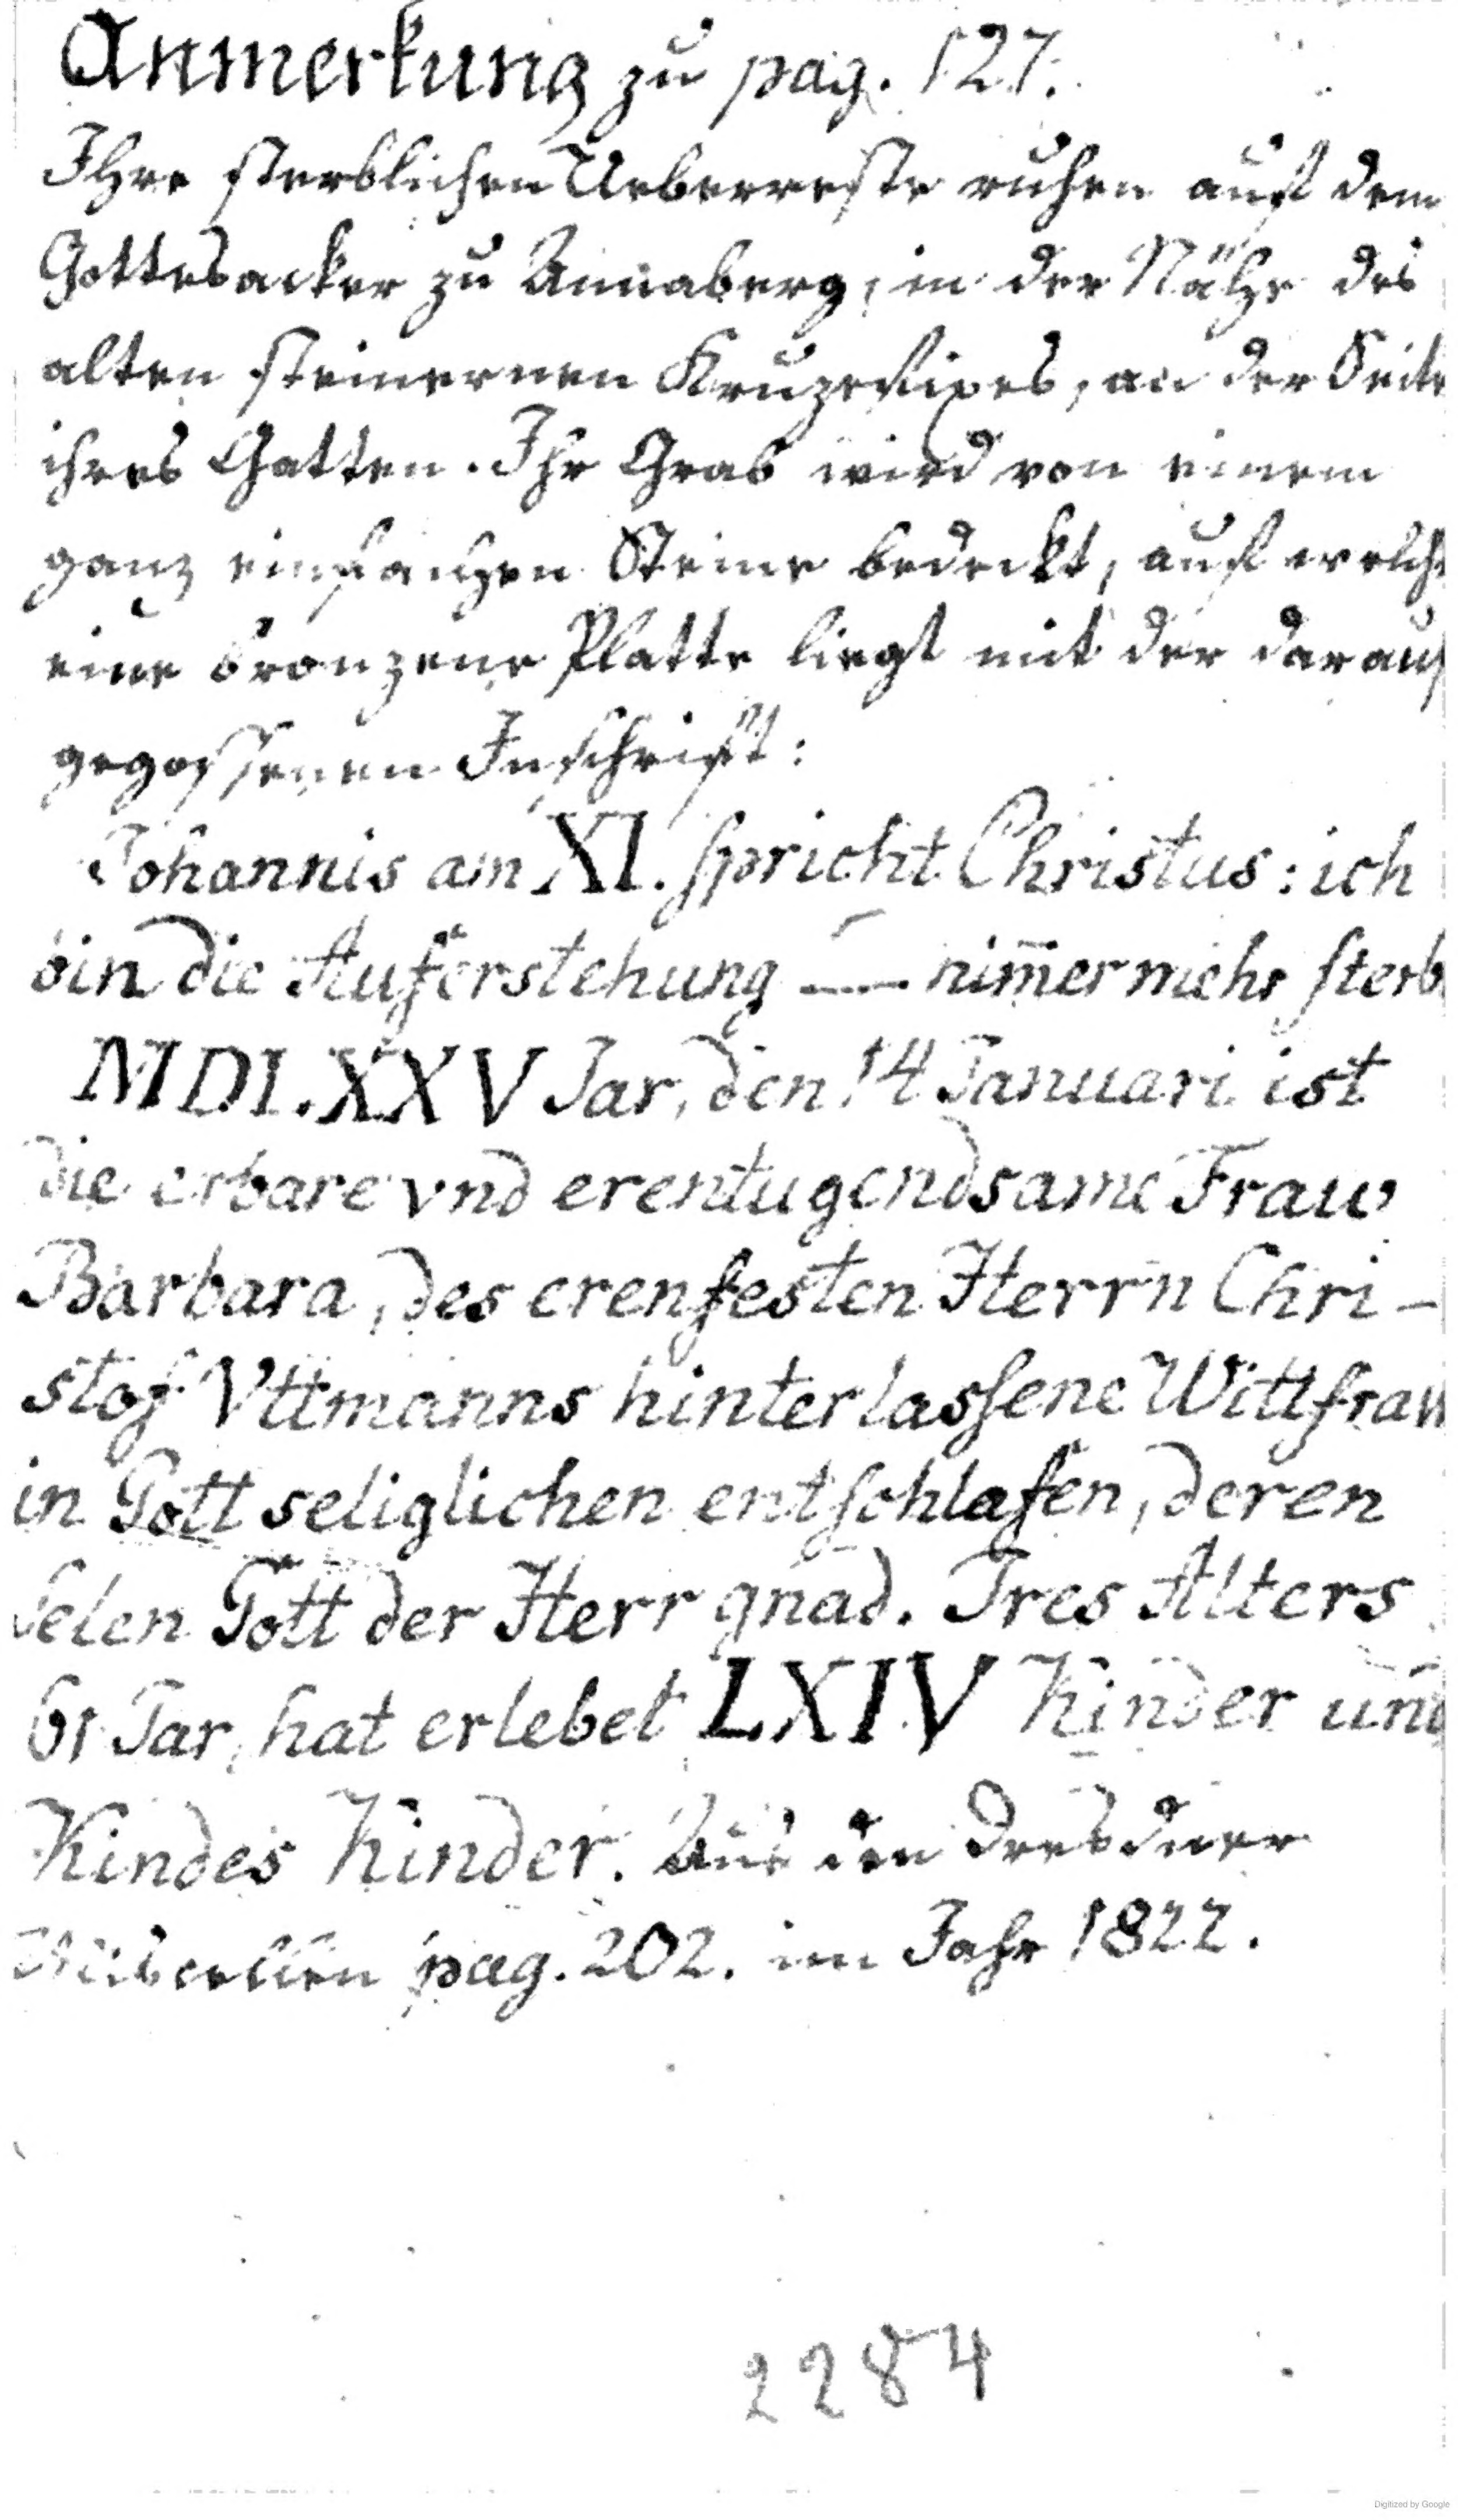 Anmerkung zu pag. 127.
Ihre sterblichen Ueberreste ruhen auf dem
Gottesacker zu Annaberg, in der Nähe des
alten steinernen Kruzefixes, an der Seite
ihres Gatten. Ihr Grab wird von einem
ganz einfachen Steine bedeckt, auf welch
eine bronzene Platte liegt mit der darauf
gegossenen Inschrift:
Johannis am XI. spricht Christus: ich
bin die Auferstehung — nim̄ermehr sterb
MDLXXV Jar, den 14 Januari ist
die erbare vnd erentugendsame Fraw
Barbara, des erenfesten Herrn Chri-
stof Vttmanns hinterlassene Wittfraw
in Gott seliglichen entschlafen, deren
Selen Gott der Herr gnad. Ires Alters
61 Jar, hat erlebet LXIV Kinder und
Kindes Kinder. Aus den Dresdner
pag. 202. im Jahr 1822.
2284
Digitized by Google